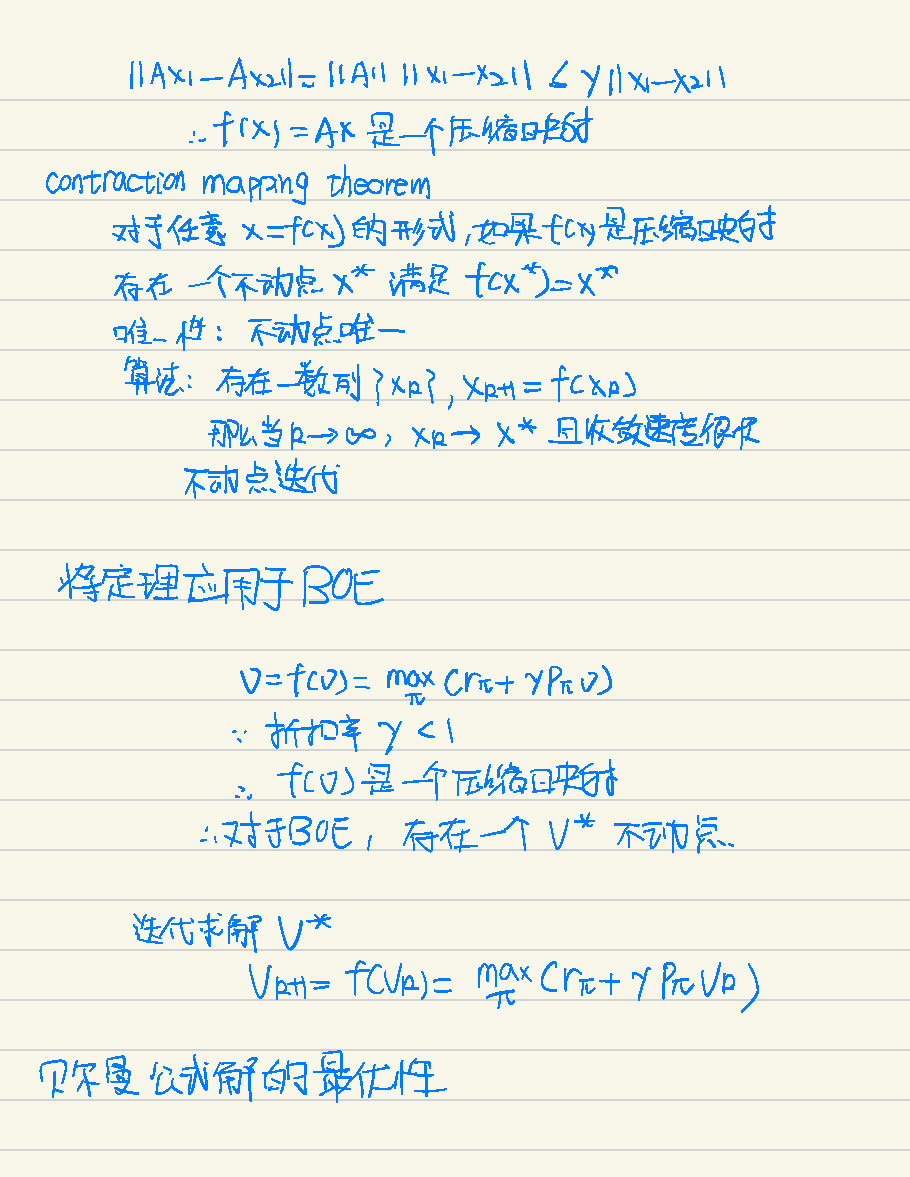 ||Ax₁-Ax₂||=||A|| ||x₁-x₂|| ≤ γ||x₁-x₂||
∴ f(x)=Ax 是一个压缩映射
contraction mapping theorem
对于任意 x=f(x)的形式,如果f(x)是压缩映射
存在一个不动点 x* 满足 f(x*)=x*
唯一性: 不动点唯一
算法: 存在一数列{xₖ}, xₖ₊₁=f(xₖ)
那么当k→∞, xₖ→x* 且收敛速度很快
不动点迭代
将定理应用于BOE
v=f(v)= max_π (r_π+γP_π v)
∵ 折扣率 γ<1
∴ f(v)是一个压缩映射
∴对于BOE, 存在一个 V* 不动点.
迭代求解 V*
Vₖ₊₁= f(Vₖ)= max_π (r_π+γP_π Vₖ)
贝尔曼公式解的最优性